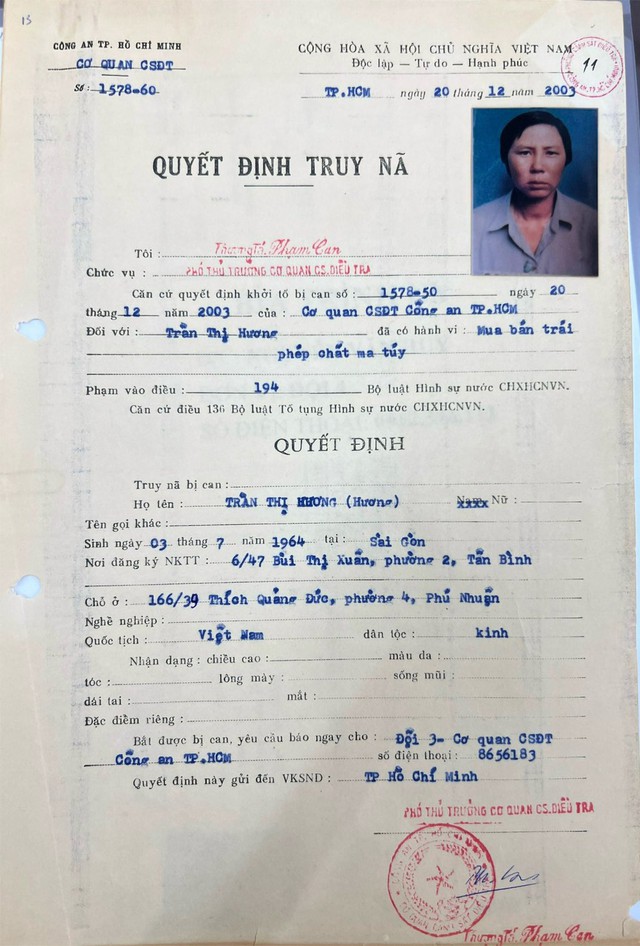 13
CÔNG AN TP. HỒ CHÍ MINH
CƠ QUAN CSĐT
Số: 1578-60
CỘNG HÒA XÃ HỘI CHỦ NGHĨA VIỆT NAM
Độc lập — Tự do — Hạnh phúc
11
TP.HCM ngày 20 tháng 12 năm 2003
QUYẾT ĐỊNH TRUY NÃ
Tôi : Thượng Tá. Phạm Can
Chức vụ : PHÓ THỦ TRƯỞNG CƠ QUAN CS.ĐIỀU TRA
Căn cứ quyết định khởi tố bị can số : 1578-50 ngày 20
tháng 12 năm 2003 của : Cơ quan CSĐT Công an TP.HCM
Đối với : Trần Thị Hương đã có hành vi : Mua bán trái
phép chất ma túy
Phạm vào điều : 194 Bộ luật Hình sự nước CHXHCNVN.
Căn cứ điều 136 Bộ luật Tố tụng Hình sự nước CHXHCNVN.
QUYẾT ĐỊNH
Truy nã bị can :
Họ tên : TRẦN THỊ HƯƠNG (Hương) Nam Nữ :
Tên gọi khác :
Sinh ngày 03 tháng 7 năm 1964 tại : Sài Gòn
Nơi đăng ký NKTT : 6/47 Bùi Thị Xuân, phường 2, Tân Bình
Chỗ ở : 166/39 Thích Quảng Đức, phường 4, Phú Nhuận
Nghề nghiệp :
Quốc tịch : Việt Nam dân tộc : kinh
Nhận dạng : chiều cao : màu da :
tóc : lông mày : sống mũi :
dái tai : mắt :
Đặc điểm riêng :
Bắt được bị can, yêu cầu báo ngay cho : Đội 3- Cơ quan CSĐT
Công an TP.HCM số điện thoại : 8656183
Quyết định này gửi đến VKSND : TP Hồ Chí Minh
PHÓ THỦ TRƯỞNG CƠ QUAN CS.ĐIỀU TRA
Thượng Tá. Phạm Can